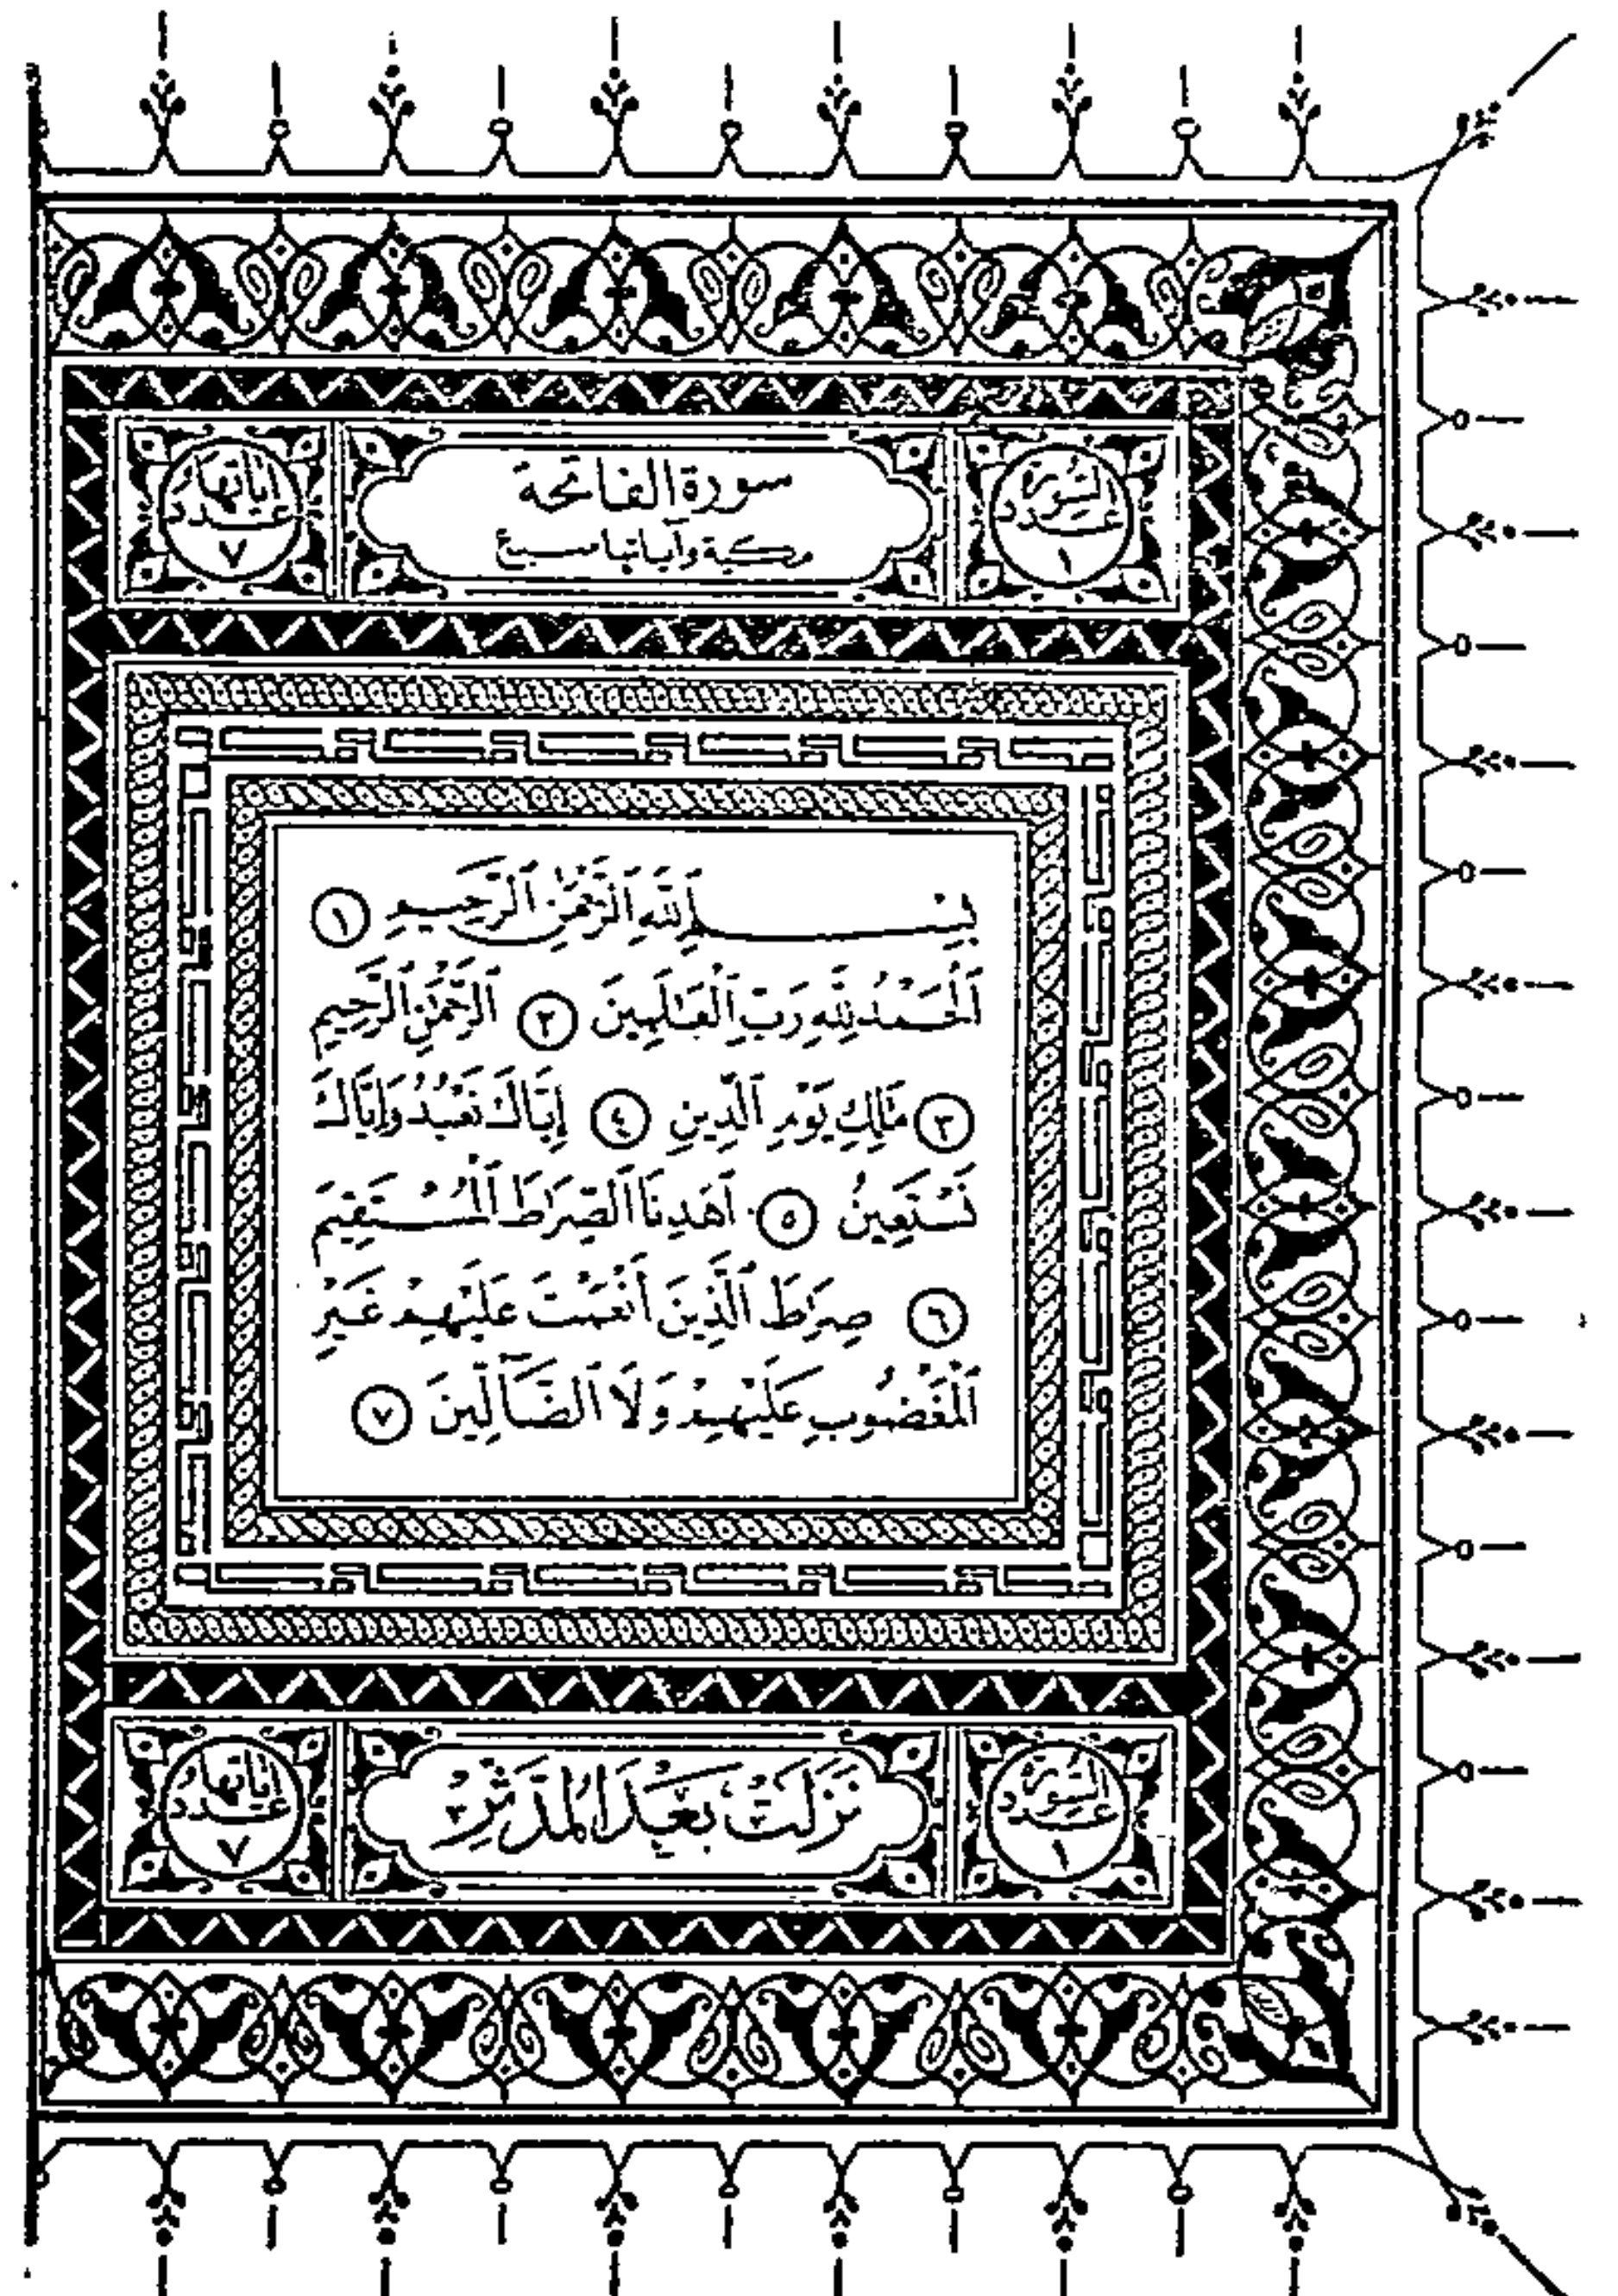 عدد السورة
١
سورة الفاتحة
مكية وآياتها سبع
عدد آياتها
٧
بِسْمِ ٱللَّهِ ٱلرَّحْمَٰنِ ٱلرَّحِيمِ ١
ٱلْحَمْدُ لِلَّهِ رَبِّ ٱلْعَٰلَمِينَ ٢ ٱلرَّحْمَٰنِ ٱلرَّحِيمِ
٣ مَٰلِكِ يَوْمِ ٱلدِّينِ ٤ إِيَّاكَ نَعْبُدُ وَإِيَّاكَ
نَسْتَعِينُ ٥ ٱهْدِنَا ٱلصِّرَٰطَ ٱلْمُسْتَقِيمَ
٦ صِرَٰطَ ٱلَّذِينَ أَنْعَمْتَ عَلَيْهِمْ غَيْرِ
ٱلْمَغْضُوبِ عَلَيْهِمْ وَلَا ٱلضَّآلِّينَ ٧
عدد السورة
١
نَزَلَتْ بَعْدَ الْمُدَّثِّرِ
عدد آياتها
٧